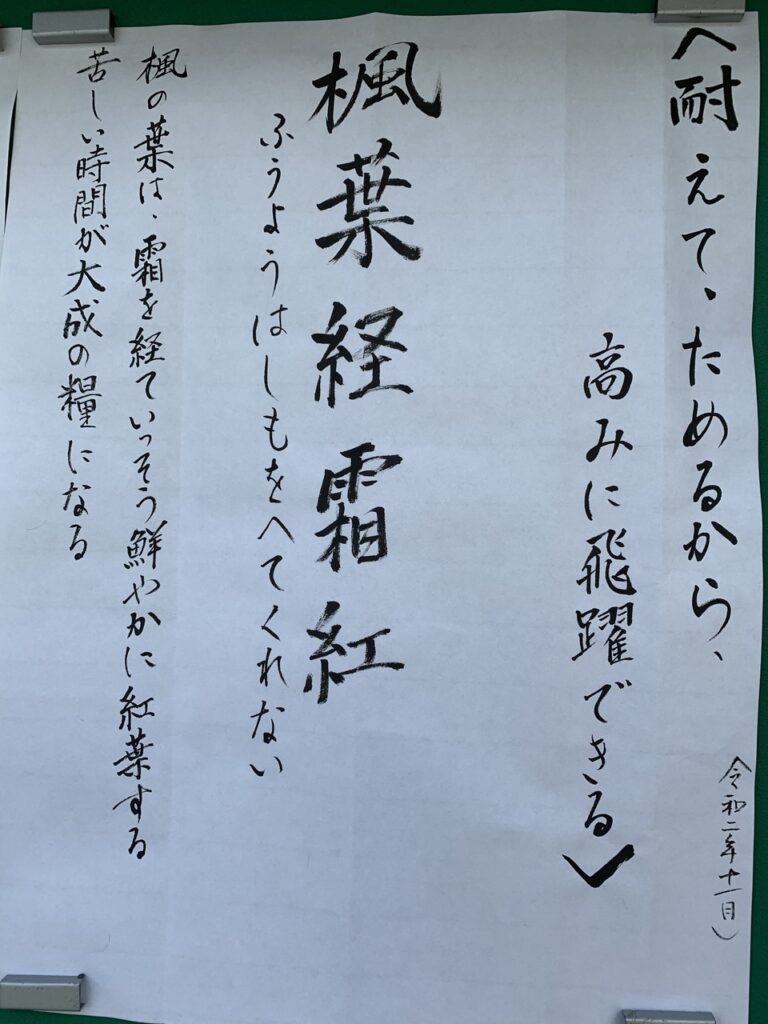 〈耐えて、ためるから、
高みに飛躍できる〉
(令和二年十一月)
楓葉経霜紅
ふうようはしもをへてくれない
楓の葉は、霜を経ていっそう鮮やかに紅葉する
苦しい時間が大成の糧になる